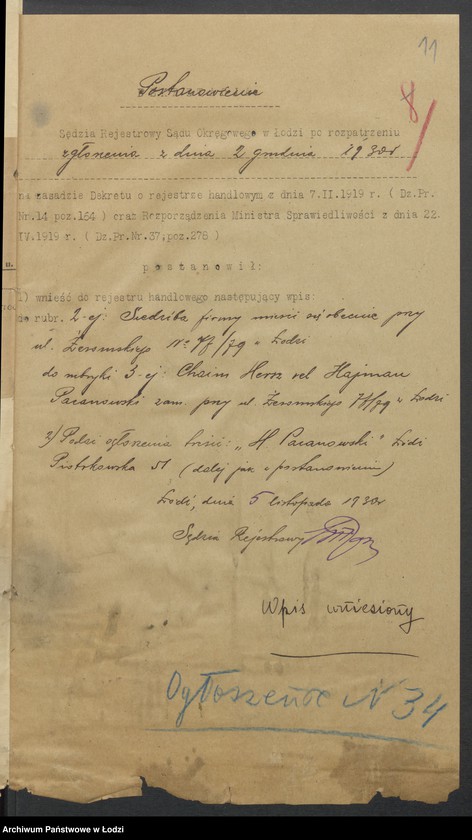 11
8/
Postanowienie
Sędzia Rejestrowy Sądu Okręgowego w Łodzi po rozpatrzeniu
zgłoszenia z dnia 2 grudnia 1930r
na zasadzie Dekretu o rejestrze handlowym z dnia 7.II.1919 r. ( Dz.Pr.
Nr.14 poz.164 ) oraz Rozporządzenia Ministra Sprawiedliwości z dnia 22.
IV.1919 r. ( Dz.Pr.Nr.37;poz.278 )
p o s t a n o w i ł :
1) wnieść do rejestru handlowego następujący wpis:
do rubr. 2-ej: Siedziba firmy mieści się obecnie przy
ul. Żeromskiego № 77/79 w Łodzi
do rubryki 3-ej: Chaim Hersz vel Hajman
Pacanowski zam. przy ul. Żeromskiego 77/79 w Łodzi
2) ogłoszenia treść: „H. Pacanowski" Łódź
Piotrkowska 51, (dalej jak w postanowieniu)
Łódź, dnia 5 listopada 1930r
Sędzia Rejestrowy
Wpis wniesiony
Ogłoszenie N 34
Archiwum Państwowe w Łodzi